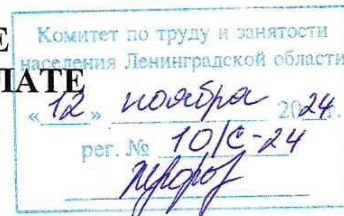 Е
ЛАТЕ
Комитет по труду и занятости
населения Ленинградской области
«12» ноября 2024 г.
рег. № 10/С-24